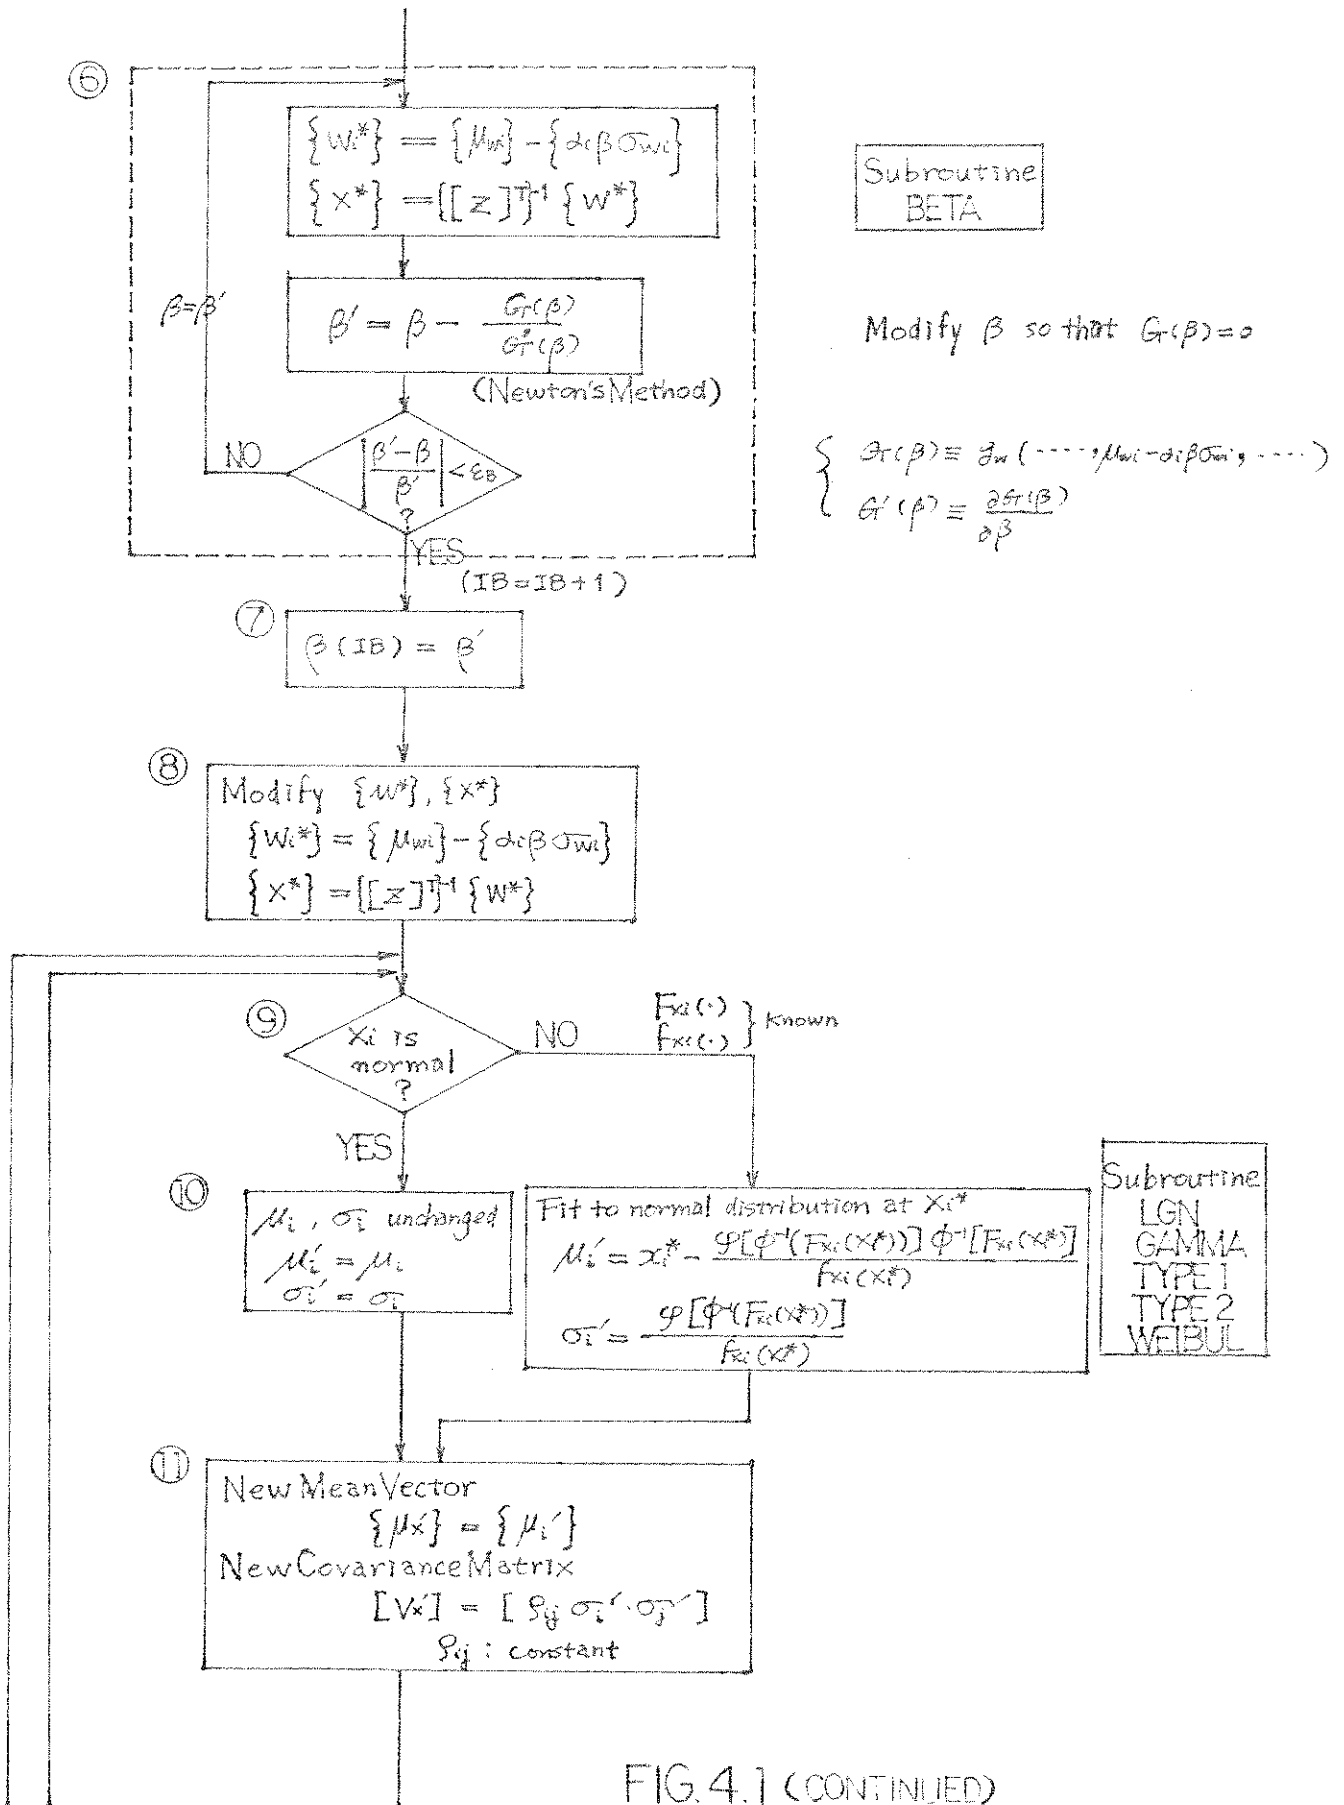 ⑥
{Wi*} = {μwi} - {αiβσwi}
{X*} = {[Z]ᵀ}⁻¹ {W*}
Subroutine
BETA
β=β′
β′ = β - G(β) / G′(β)
(Newton's Method)
Modify β so that G(β)=0
NO
|(β′-β) / β′| < εB
?
YES
G(β) ≡ gw (----, μwi-αiβσwi, ----)
G′(β) ≡ ∂G(β) / ∂β
(IB=IB+1)
⑦
β(IB) = β′
⑧
Modify {W*}, {X*}
{Wi*} = {μwi} - {αiβσwi}
{X*} = {[Z]ᵀ}⁻¹ {W*}
⑨
Xi is
normal
?
NO
Fxi(·)
fxi(·)
} Known
YES
⑩
μi, σi unchanged
μi′ = μi
σi′ = σi
Fit to normal distribution at Xi*
μi′ = xi* - φ[Φ⁻¹(Fxi(Xi*))] Φ⁻¹[Fxi(Xi*)] / fxi(Xi*)
σi′ = φ[Φ⁻¹(Fxi(Xi*))] / fxi(Xi*)
Subroutine
LGN
GAMMA
TYPE 1
TYPE 2
WEIBUL
⑪
New Mean Vector
{μx′} = {μi′}
New Covariance Matrix
[Vx′] = [ρij σi′·σj′]
ρij : constant
FIG. 4.1 (CONTINUED)